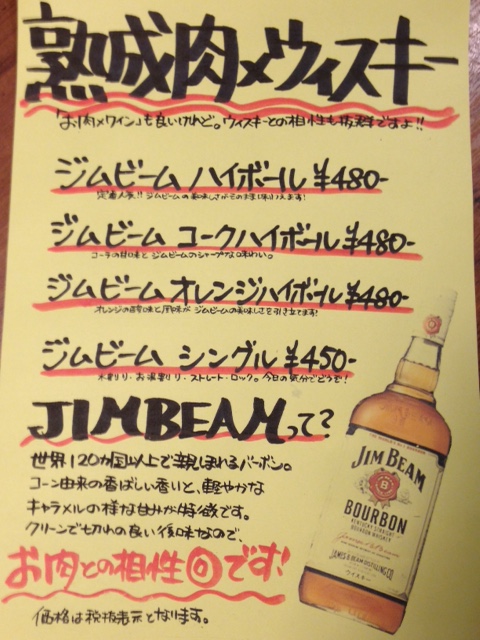 熟成肉×ウィスキー
「お肉×ワイン」も良いけれど。ウィスキーとの相性も抜群ですよ!!
ジムビーム ハイボール ¥480-
定番人気!! ジムビームの美味しさがそのまま味わえます!
ジムビーム コークハイボール ¥480-
コーラの甘味と ジムビームのシャープな味わい。
ジムビーム オレンジハイボール ¥480-
オレンジの酸味と風味が ジムビームの美味しさを引き立てます!
ジムビーム シングル ¥450-
水割り・お湯割り・ストレート・ロック。今日の気分でどうぞ!
JIMBEAMって?
世界120カ国以上で親しまれるバーボン。
コーン由来の香ばしい香いと、軽やかな
キャラメルの様な甘みが特徴です。
クリーンでも切れの良い後味なので、
お肉との相性◎です!
価格は税抜表示となります。
JIM BEAM
BOURBON
KENTUCKY STRAIGHT
BOURBON WHISKEY
JAMES B. BEAM DISTILLING CO.
ウイスキー